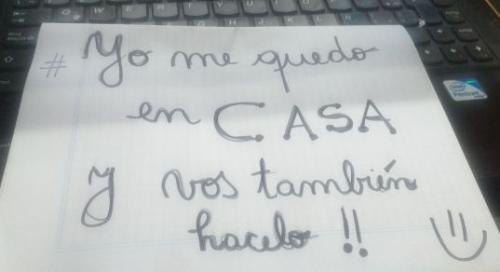 # Yo me quedo
en CASA
y vos también
hacelo !!
intel
Pentium